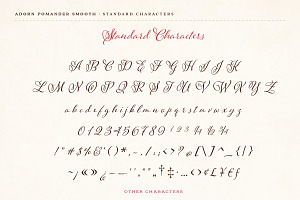 ADORN POMANDER SMOOTH · STANDARD CHARACTERS
Standard Characters
A B C D E F G H I J K
L M N O P Q R S T U V W X Y Z
a b c d e f g h i j k l m n o p q r s t u v w x y z
0 1 2 3 4 5 6 7 8 9 1 2 3
! " # $ % & ' ( ) * , - . / : ; < > ? @ [ \ ] ^ _ { | }
OTHER CHARACTERS